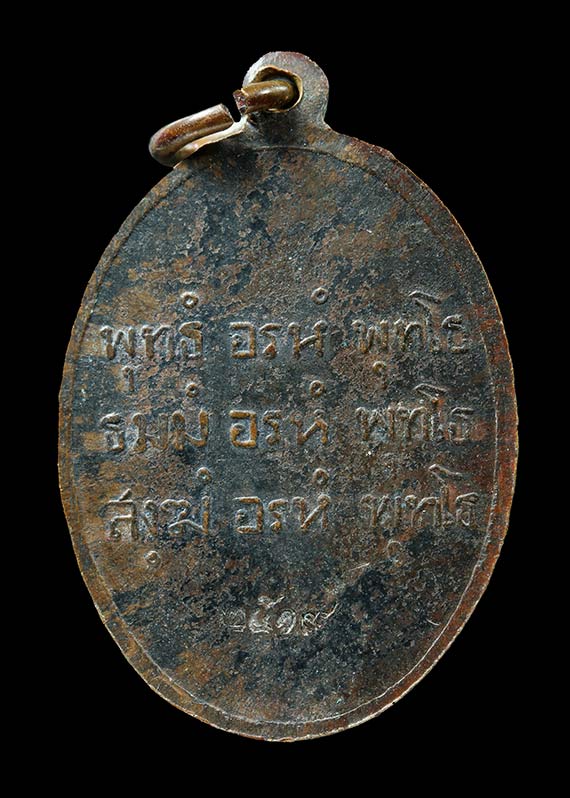 พุทธํ อรหํ พุทโธ
ธมฺมํ อรหํ พุทโธ
สงฺฆํ อรหํ พุทโธ
๒๕๑๙